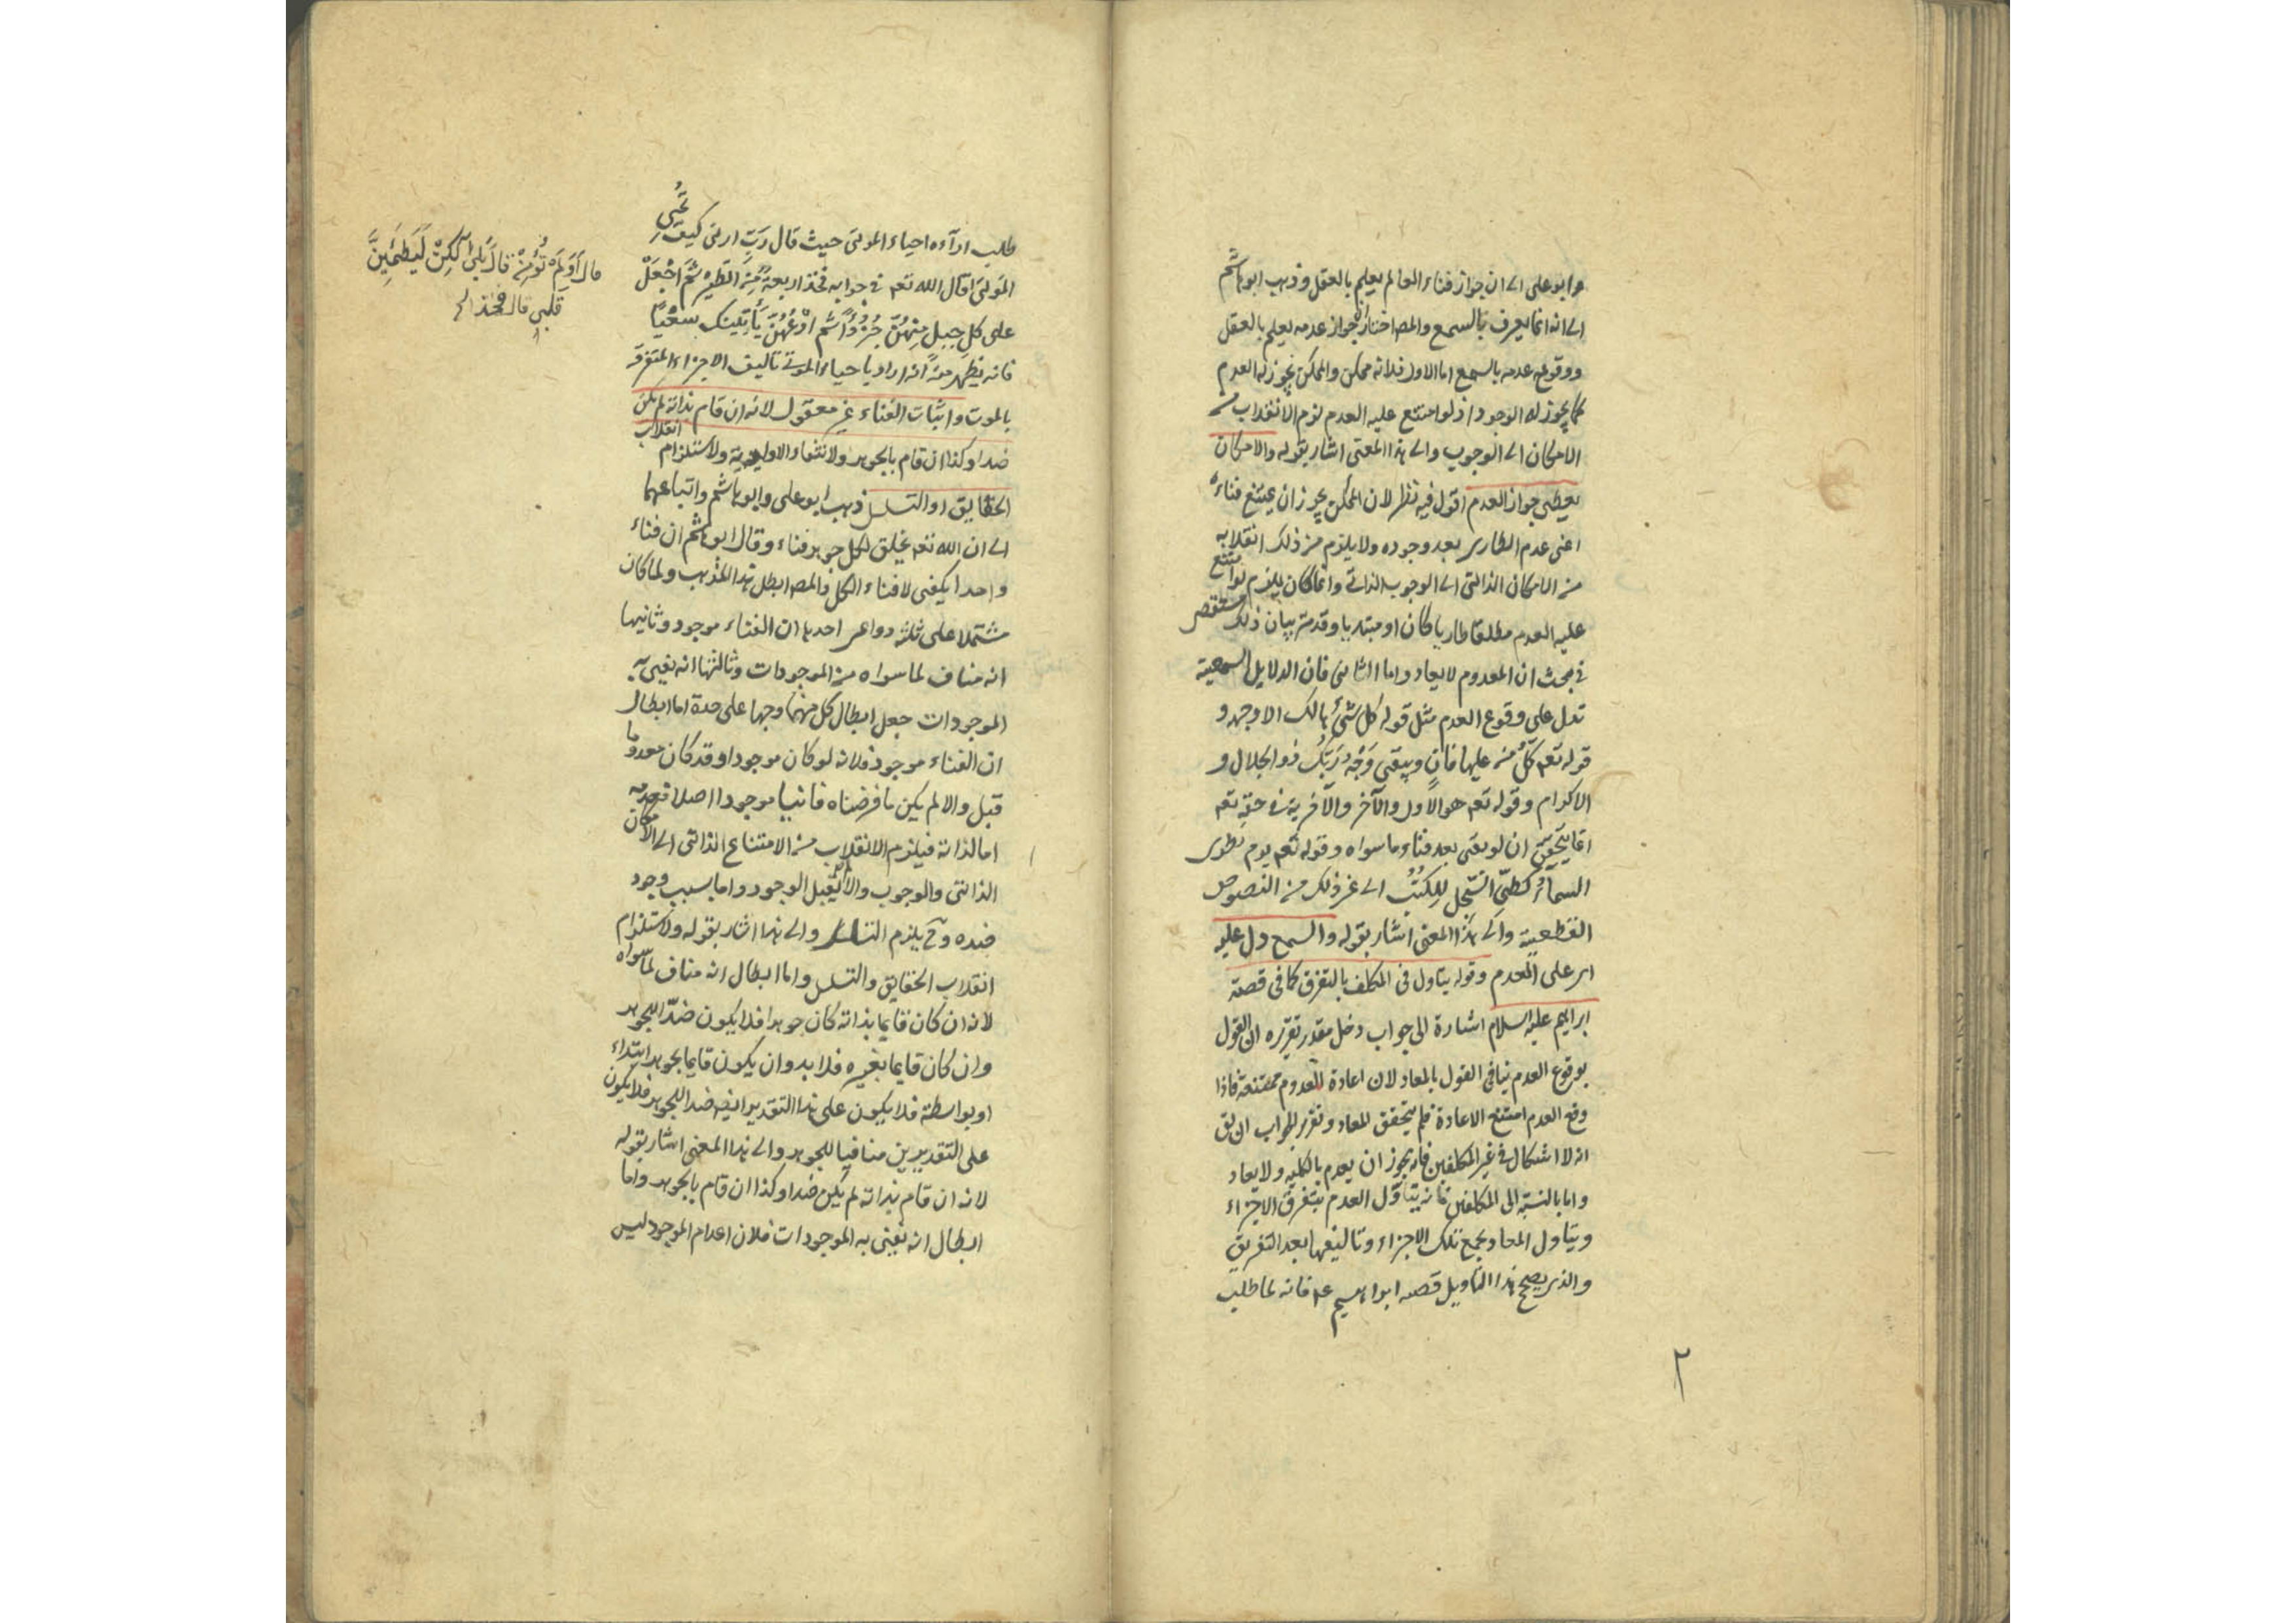 وابو على الى ان جواز فناء العالم يعلم بالعقل وذهب ابو هاشم
الى انه انما يعرف بالسمع والمصـ اختار ان جواز عدمه يعلم بالعقل
ووقوع عدمه بالسمع اما الاول فلانه ممكن والممكن يجوز له العدم
كما يجوز له الوجود اذ لو امتنع عليه العدم لزم الانقلاب من
الامكان الى الوجوب والى هذا المعنى اشار بقوله والامكان
يعطى جواز العدم اقول فيه نظر لان الممكن يجوز ان يمتنع فناءه
اعنى عدم الطارى بعد وجوده ولا يلزم من ذلك انقلابه
من الامكان الذاتى الى الوجوب الذاتى وانما كان يلزم لو امتنع
عليه العدم مطلقا طاريا كان او مبتديا وقد مر بيان ذلك مستقصى
فى بحث ان المعدوم لا يعاد واما الثانى فان الدلايل السمعية
تدل على وقوع العدم مثل قوله كل شئ هالك الا وجهه و
قوله تعم كلُّ من عليها فانٍ ويبقى وَجْهُ رَبِّكَ ذو الجلال و
الاكرام وقوله تعم هو الاول والآخر والآخرية فى حقه تعم
انما يتحقق ان لو بقى بعد فناء ما سواه وقوله تعم يوم نطوى
السماءَ كطىّ السّجل للكتب الى غير ذلك من النصوص
القطعية والى هذا المعنى اشار بقوله والسمع دل عليه
اى على العدم وقوله يتأول فى المكلف بالتفرق كما فى قصة
ابراهيم عليه السلام اشارة الى جواب دخل مقدر تقريره ان القول
بوقوع العدم ينافى القول بالمعاد لان اعادة المعدوم ممتنعة فاذا
وقع العدم امتنع الاعادة فلم يتحقق المعاد وتقرير الجواب ان يق
انه لا اشكال فى غير المكلفين فانه يجوز ان يعدم بالكليه ولا يعاد
واما بالنسبة الى المكلفين فانه يتأول العدم بتفرق الاجزاء
ويتاول المعاد بجمع تلك الاجزاء وتاليفها بعد التفريق
والذى يصحح هذا التاويل قصه ابراهيم عم فانه لما طلب
٢
طلب اراءه احياء الموتى حيث قال رَبِّ ارنى كيف تُحْيِى
الموتى قال الله تعم فى جوابه فخذ اربعةً مِنَ الطيرِ ثُمَّ اجْعَلْ
على كل جبل مِنهُنَّ جُزْءًا ثم ادْعُهُنَّ يَأتِينَكَ سَعْيًا
فانه يظهر منه انه اراد باحياء الموتى تاليف الاجزاء المتفرقه
بالموت واثبات الفناء غير معقول لانه ان قام بذاته لم يكن
ضدا وكذا ان قام بالجوهر ولانتفاء الاولوية ولاستلزام انقلاب
الحقايق او التسلسل ذهب ابو على وابو هاشم واتباعهما
الى ان الله تعم يخلق لكل جوهر فناء وقال ابو هاشم ان فناء
واحدا يكفى لافناء الكل والمصـ ابطل هذا المذهب ولما كان
مشتملا على ثلثه دواعى احديها ان الفناء موجود وثانيها
انه مناف لما سواه من الموجودات وثالثها انه يفنى به
الموجودات جعل ابطال كل منهما وجها على حدة اما ابطال
ان الفناء موجود فلانه لو كان موجودا وقد كان معدوما
قبل والا لم يكن ما فرضناه فانيا موجودا اصلا فعدمه
اما لذاته فيلزم الانقلاب من الامتناع الذاتى الى الامكان
الذاتى والوجوب والا لم يقبل الوجود واما بسبب وجود
ضده وح يلزم التسلسل والى هذا اشار بقوله ولاستلزام
انقلاب الحقايق والتسلسل واما ابطال انه مناف لما سواه
لانه ان كان قايما بذاته كان جوهرا فلا يكون ضدّا للجوهر
وان كان قايما بغيره فلا بد وان يكون قايما بجوهر ابتداء
او بواسطة فلا يكون على هذا التقدير ايضا ضد للجوهر فلا يكون
على التقديرين منافيا للجوهر والى هذا المعنى اشار بقوله
لانه ان قام بذاته لم يكن ضدا وكذا ان قام بالجوهر واما
ابطال انه يفنى به الموجودات فلان اعدام الموجود ليس
قال أَوَلَمْ تُؤْمِنْ قال بَلى ولكِنْ لِيَطمَئِنَّ
قلبى قال فخذ الخ